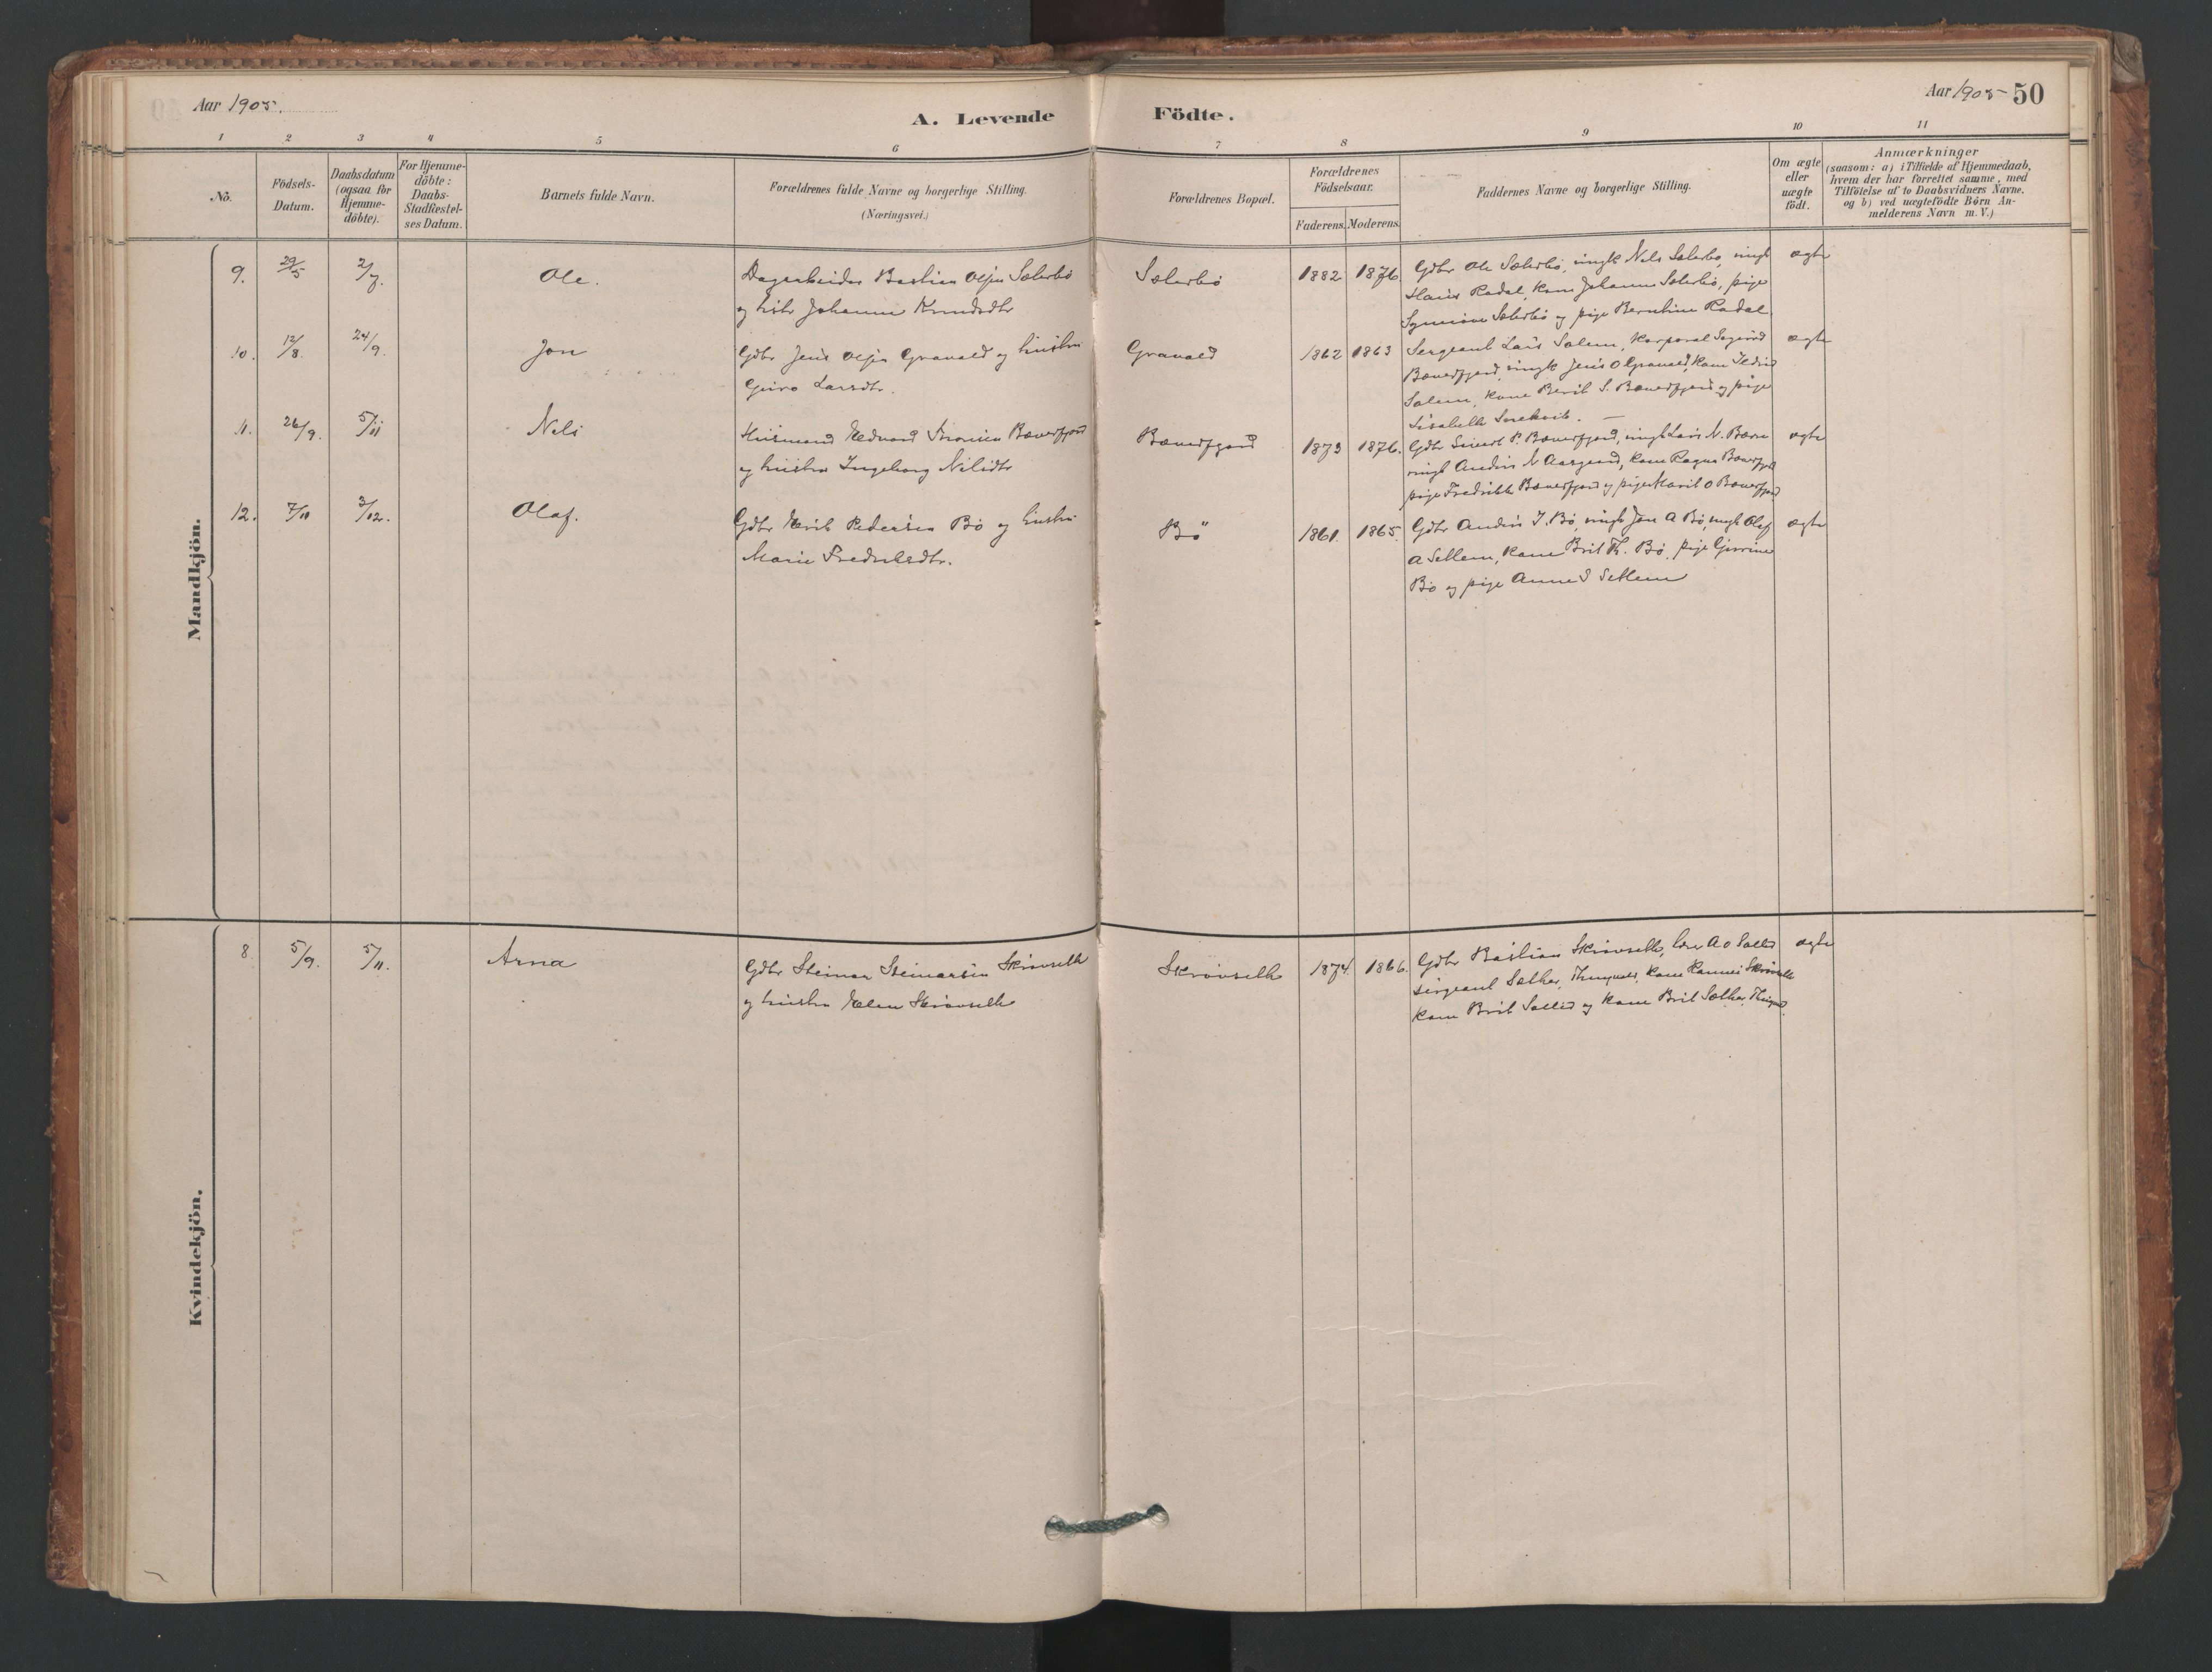 Aar 1905.
A. Levende
Födte.
Aar 1905
50
1 2 3 4 5 6 7 8 9 10 11
No.
Födsels-
Datum.
Daabsdatum
(ogsaa for
Hjemme-
döbte).
For Hjemme-
döbte:
Daabs-
Stadfæstel-
ses Datum.
Barnets fulde Navn.
Forældrenes fulde Navne og borgerlige Stilling.
(Næringsvei.)
Forældrenes Bopæl.
Forældrenes
Födselsaar.
Faderens.
Moderens.
Faddernes Navne og borgerlige Stilling.
Om ægte
eller
uægte
födt.
Anmærkninger
(saasom: a) i Tilfælde af Hjemmedaab,
hvem der har forrettet samme, med
Tilföielse af to Daabsvidners Navne.
og b) ved uægtefödte Börn An-
melderens Navn m. V.)
Mandkjön.
9. 29/5 2/7. Ole.
Dagarbeider Bastian Olsen Sæterbø
og hstr Johanne Knudsdtr
Sæterbø 1882 1876
Gdbr Ole Sæterbø, ungk Nels Sæterbø, ungk
Hans Rodal, kone Johanne Sæterbø, pige
Synnøve Sæterbø og pige Berntine Rodal
ægte
10. 12/8. 24/9. Jon
Gdbr Jens Olsen Granald og hustru
Guro Larsdtr.
Granald 1862 1863
Sergeant Lars Solem, Korporal
Bæverfjord, ungk Jens O Granald, kone
Solem, kone Berit S. Bæverfjord og pige
ægte
11. 26/9. 5/11 Nels
Husmand Edvard Bæverfjord
og hustru Ingeborg Nilsdtr
Bæverfjord 1873 1876.
Gdbr Sivert P. Bæverfjord, ungk Lars N. Bæver
ungk Anders N Aasgaard, kone Ragna Bæverfjord
pige Fredrikke Bæverfjord og pige Marit O Bæverfjord
ægte
12. 7/11 3/12. Olaf.
Gdbr Erik Pedersen Bø og hustru
Marie Fredriksdtr.
Bø 1861. 1865.
Gdbr Anders J. Bø, ungk Jon A Bø, ungk Olaf
A Settem, kone Brit Th. Bø, pige Gjerrine
Bø og pige Anne S Settem
ægte
Kvindekjön.
8. 5/9. 5/11. Arna
Gdbr Steinar Steinarsen Skrøvseth
og hustru Elen Skrøvseth
Skrøvseth 1874. 1866.
Gdbr Bastian Skrøvseth, A O
sergeant Sæther, kone Skrøvseth
kone Brit og kone Brit Sæther,
ægte